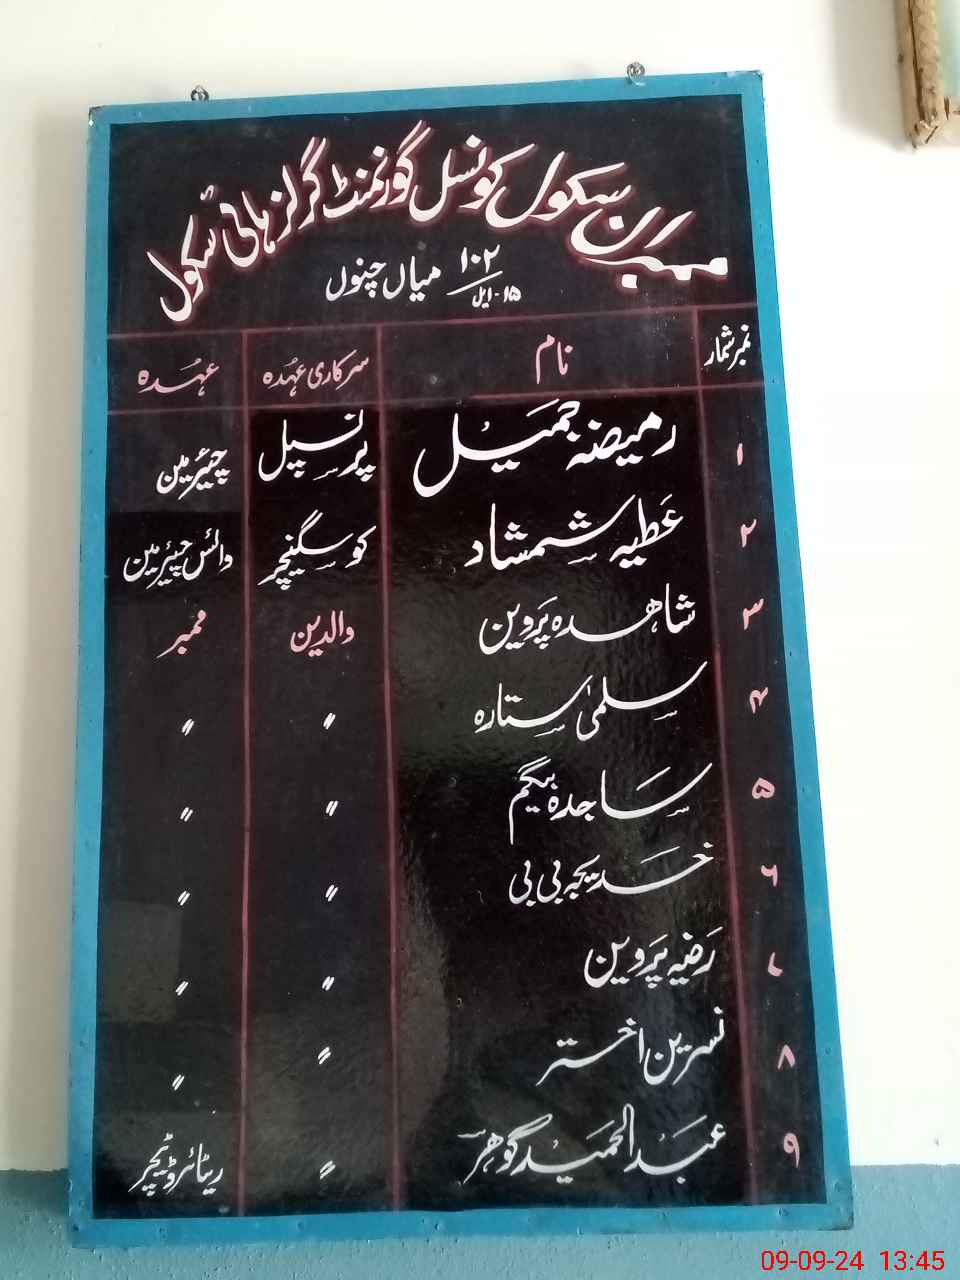 ممبران سکول کونسل گورنمنٹ گرلز ہائی سکول
۱۰۲/۱۵-ایل میاں چنوں
نمبر شمار نام سرکاری عہدہ عہدہ
۱ رمیضہ جمیل پرنسپل چیئرمین
۲ عطیہ شمشاد کو سگنیچر وائس چیئرمین
۳ شاھدہ پروین والدین ممبر
۴ سلمیٰ ستارہ 〃 〃
۵ ساجدہ بیگم 〃 〃
۶ خدیجہ بی بی 〃 〃
۷ رضیہ پروین 〃 〃
۸ نسرین اختر 〃 〃
۹ عبدالحمید گوھر 〃 ریٹائرڈ ٹیچر
09-09-24 13:45